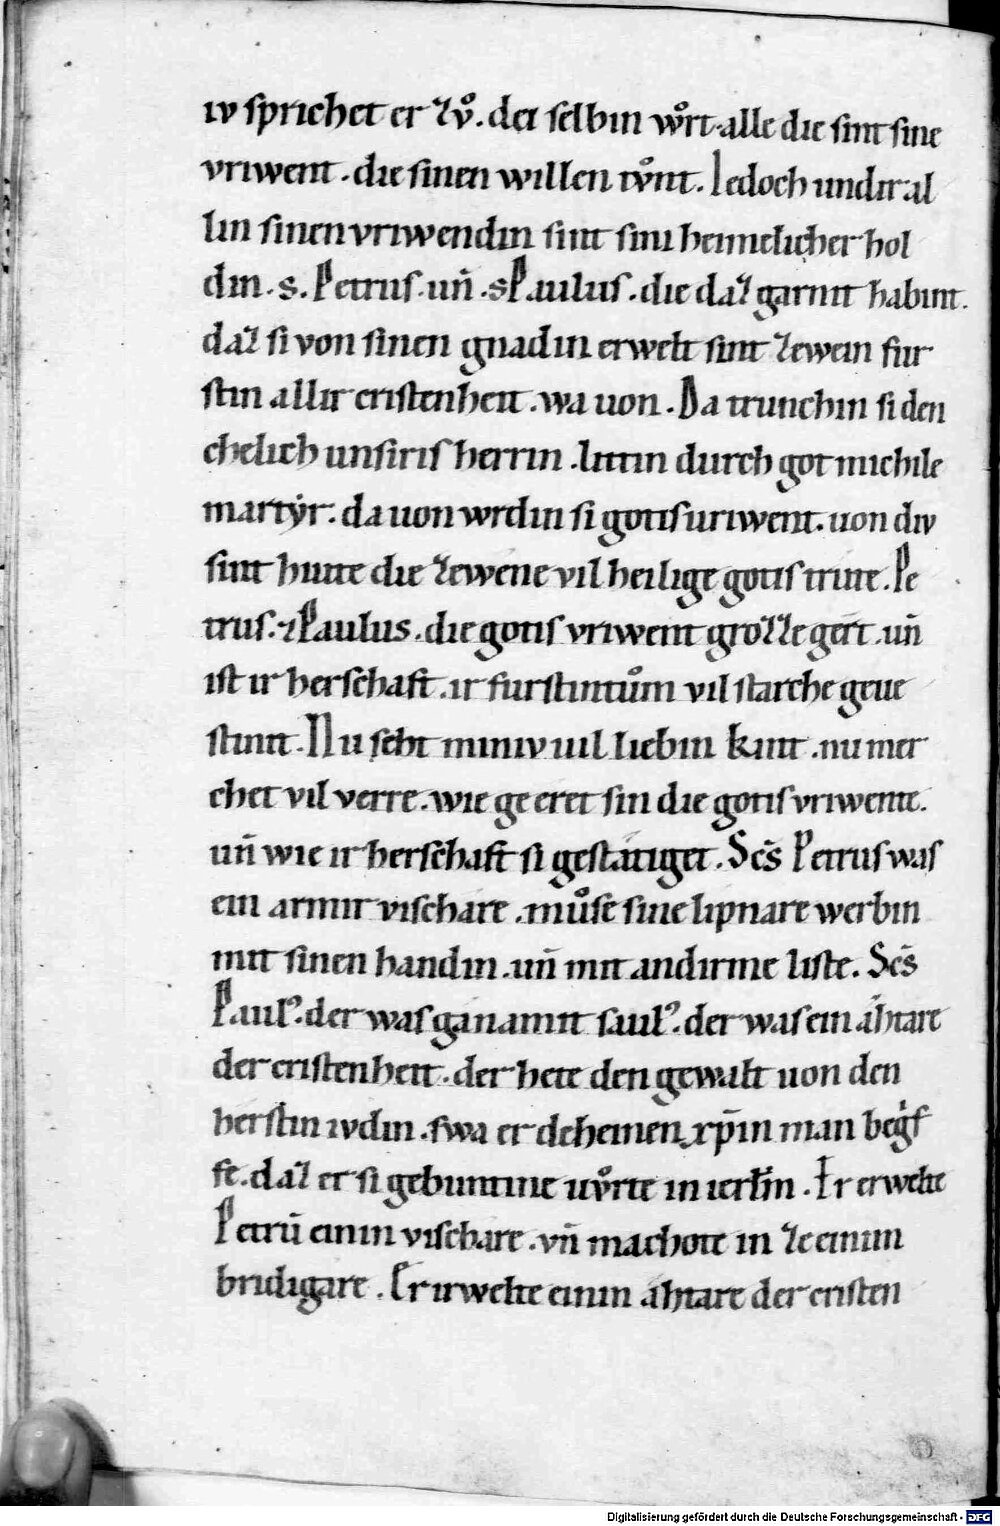 iv sprichet er zv̊. dei selbin wo̊rt. alle die sint sine
vriwent. die sinen willen tv̊nt. Iedoch undir al
lin sinen vriwendin sint sini heimelicher hol
din. s. Petrus. uñ. s Paulus. die daz garnit habint.
daz si von sinen gnadin erwelt sint zewein fur
stin allir cristenheit. wa uon. Da trunchin si den
chelich unsiris herrin. litin durch got michile
martẏr. da uon wrdin si gotis uriwent. uon div
sint hiute die zewene vil heilige gotis trute. Pe
trus. ⁊ Paulus. die gotis vriwent grozze gert. uñ
ist ir herschaft. ir furstintům vil starche geue
stint. Nu seht miniv uil liebin kint. nu mer
chet vil verre. wie ge eret sin die gotis vriwente.
uñ wie ir herschaft si gestatiget. Scs̄ Petrus was
ein armir vischare. můse sine lipnare werbin
mit sinen handin. uñ mit andirme liste. Scs̄
Paulꝰ. der was ganamit saulꝰ. der was ein ahtare
der cristenheit. der hete den gewalt uon den
herstin ivdin. swa er deheinen xp̄in man begif
fe. daz er si gebuntine uv̊rte in ierłm. Er erwelte
Petrū einin vischare. vñ machote in ze einim
bridigare. Er irwelte einin ahtare der cristen
Digitalisierung gefördert durch die Deutsche Forschungsgemeinschaft - DFG